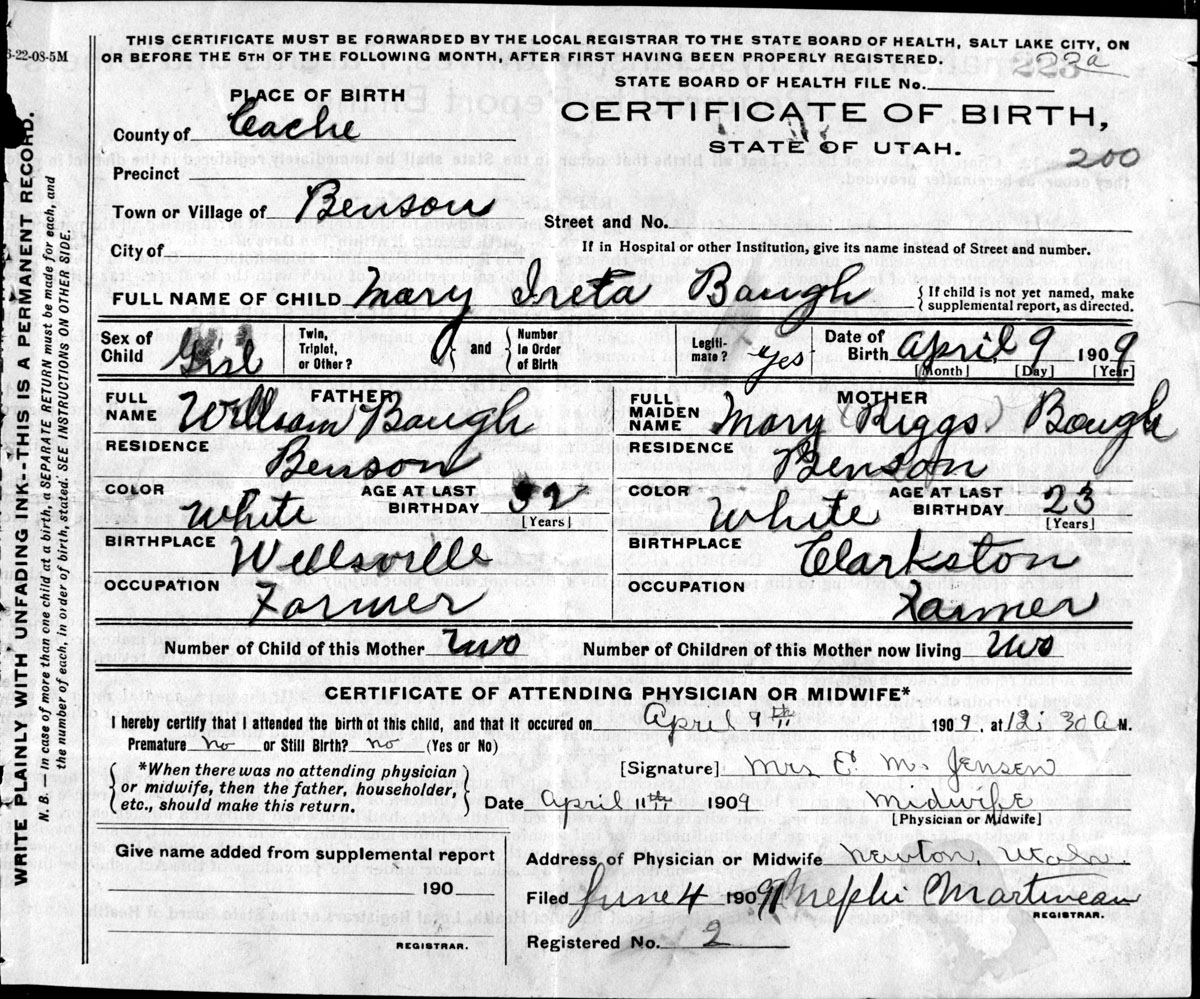 THIS CERTIFICATE MUST BE FORWARDED BY THE LOCAL REGISTRAR TO THE STATE BOARD OF HEALTH, SALT LAKE CITY, ON
OR BEFORE THE 5TH OF THE FOLLOWING MONTH, AFTER FIRST HAVING BEEN PROPERLY REGISTERED.
-22-08-5M
223a
STATE BOARD OF HEALTH FILE No.
PLACE OF BIRTH
CERTIFICATE OF BIRTH,
STATE OF UTAH.
200
County of Cache
Precinct
Town or Village of Benson
Street and No.
City of
If in Hospital or other Institution, give its name instead of Street and number.
FULL NAME OF CHILD Mary Ireta Baugh
{ If child is not yet named, make
supplemental report, as directed.
Sex of Child Girl
Twin, Triplet, or Other? } and { Number In Order of Birth
Legiti-mate? Yes
Date of Birth April 9 1909
[Month] [Day] [Year]
FATHER
FULL NAME William Baugh
RESIDENCE Benson
COLOR White
AGE AT LAST BIRTHDAY 32
[Years]
BIRTHPLACE Wellsville
OCCUPATION Farmer
MOTHER
FULL MAIDEN NAME Mary (Riggs) Baugh
RESIDENCE Benson
COLOR White
AGE AT LAST BIRTHDAY 23
[Years]
BIRTHPLACE Clarkston
OCCUPATION Farmer
Number of Child of this Mother Two
Number of Children of this Mother now living Two
CERTIFICATE OF ATTENDING PHYSICIAN OR MIDWIFE*
I hereby certify that I attended the birth of this child, and that it occured on April 9th 1909, at 12:30 A M.
Premature no or Still Birth? no (Yes or No)
{ *When there was no attending physician
or midwife, then the father, householder,
etc., should make this return. }
[Signature] Mrs E. M. Jensen
Date April 11th 1909
Midwife
[Physician or Midwife]
Give name added from supplemental report
190
REGISTRAR.
Address of Physician or Midwife Newton, Utah.
Filed June 4 1909 Nephi Martineau
REGISTRAR.
Registered No. 2
WRITE PLAINLY WITH UNFADING INK--THIS IS A PERMANENT RECORD.
N. B. In case of more than one child at a birth, a SEPARATE RETURN must be made for each, and
the number of each, in order of birth, stated. SEE INSTRUCTIONS ON OTHER SIDE.